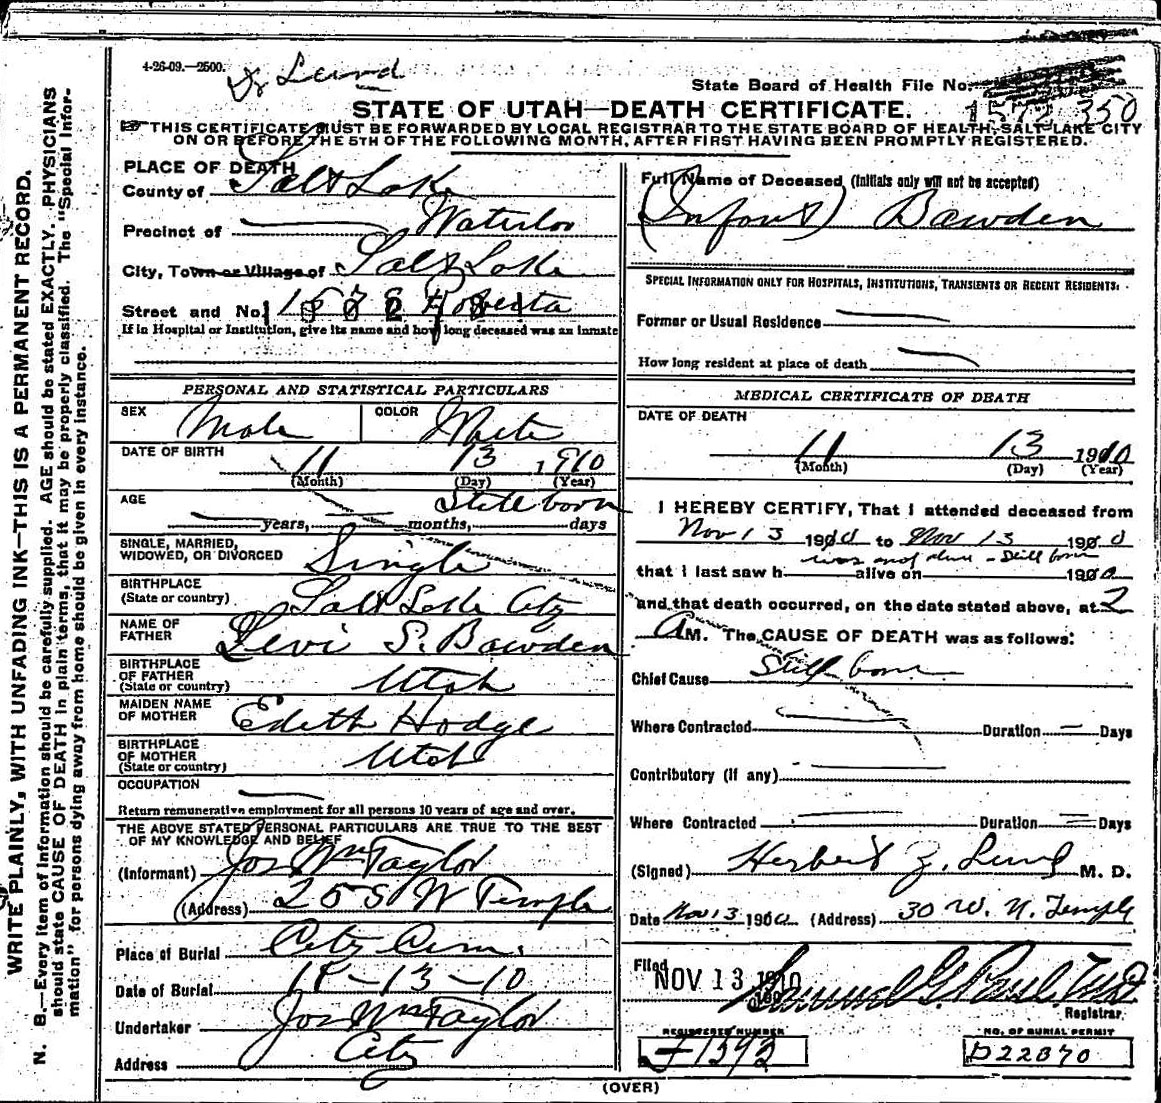 4-26-09.—2500.
Dr Lund
State Board of Health File No.
1572 350
STATE OF UTAH—DEATH CERTIFICATE.
THIS CERTIFICATE MUST BE FORWARDED BY LOCAL REGISTRAR TO THE STATE BOARD OF HEALTH, SALT LAKE CITY
ON OR BEFORE THE 5TH OF THE FOLLOWING MONTH, AFTER FIRST HAVING BEEN PROMPTLY REGISTERED.
WRITE PLAINLY, WITH UNFADING INK—THIS IS A PERMANENT RECORD.
N. B.—Every item of information should be carefully supplied. AGE should be stated EXACTLY. PHYSICIANS
should state CAUSE OF DEATH in plain terms, that it may be properly classified. The "Special Infor-
mation" for persons dying away from home should be given in every instance.
PLACE OF DEATH
County of Salt Lake
Precinct of Waterloo
City, Town or Village of Salt Lake
Street and No. Roberta
If in Hospital or Institution, give its name and how long deceased was an inmate
PERSONAL AND STATISTICAL PARTICULARS
SEX Male COLOR White
DATE OF BIRTH 11 13 1910
(Month) (Day) (Year)
AGE Still born
years, months, days
SINGLE, MARRIED,
WIDOWED, OR DIVORCED Single
BIRTHPLACE
(State or country) Salt Lake City
NAME OF
FATHER Levi S. Bawden
BIRTHPLACE
OF FATHER
(State or country) Utah
MAIDEN NAME
OF MOTHER Edith Hodge
BIRTHPLACE
OF MOTHER
(State or country) Utah
OCCUPATION
Return remunerative employment for all persons 10 years of age and over.
THE ABOVE STATED PERSONAL PARTICULARS ARE TRUE TO THE BEST
OF MY KNOWLEDGE AND BELIEF
(Informant) Jos Wm Taylor
(Address) 25 S W Temple
Place of Burial City Cem.
Date of Burial 11-13-10
Undertaker Jos Wm Taylor
Address City
Full Name of Deceased (Initials only will not be accepted)
(Infant) Bawden
SPECIAL INFORMATION ONLY FOR HOSPITALS, INSTITUTIONS, TRANSIENTS OR RECENT RESIDENTS:
Former or Usual Residence
How long resident at place of death
MEDICAL CERTIFICATE OF DEATH
DATE OF DEATH
11 13 1910
(Month) (Day) (Year)
I HEREBY CERTIFY, That I attended deceased from
Nov 13 1910 to Nov 13 1910
was not alive - Still born
that I last saw h alive on 1910
and that death occurred, on the date stated above, at 2
A M. The CAUSE OF DEATH was as follows:
Chief Cause Still born
Where Contracted Duration Days
Contributory (if any)
Where Contracted Duration Days
(Signed) Herbert Z. Lund M. D.
Date Nov 13 1910 (Address) 30 W. N. Temple
Filed NOV 13 1910
Samuel G. Paul MD
Registrar.
REGISTERED NUMBER
NO. OF BURIAL PERMIT
F1593
D22870
(OVER)